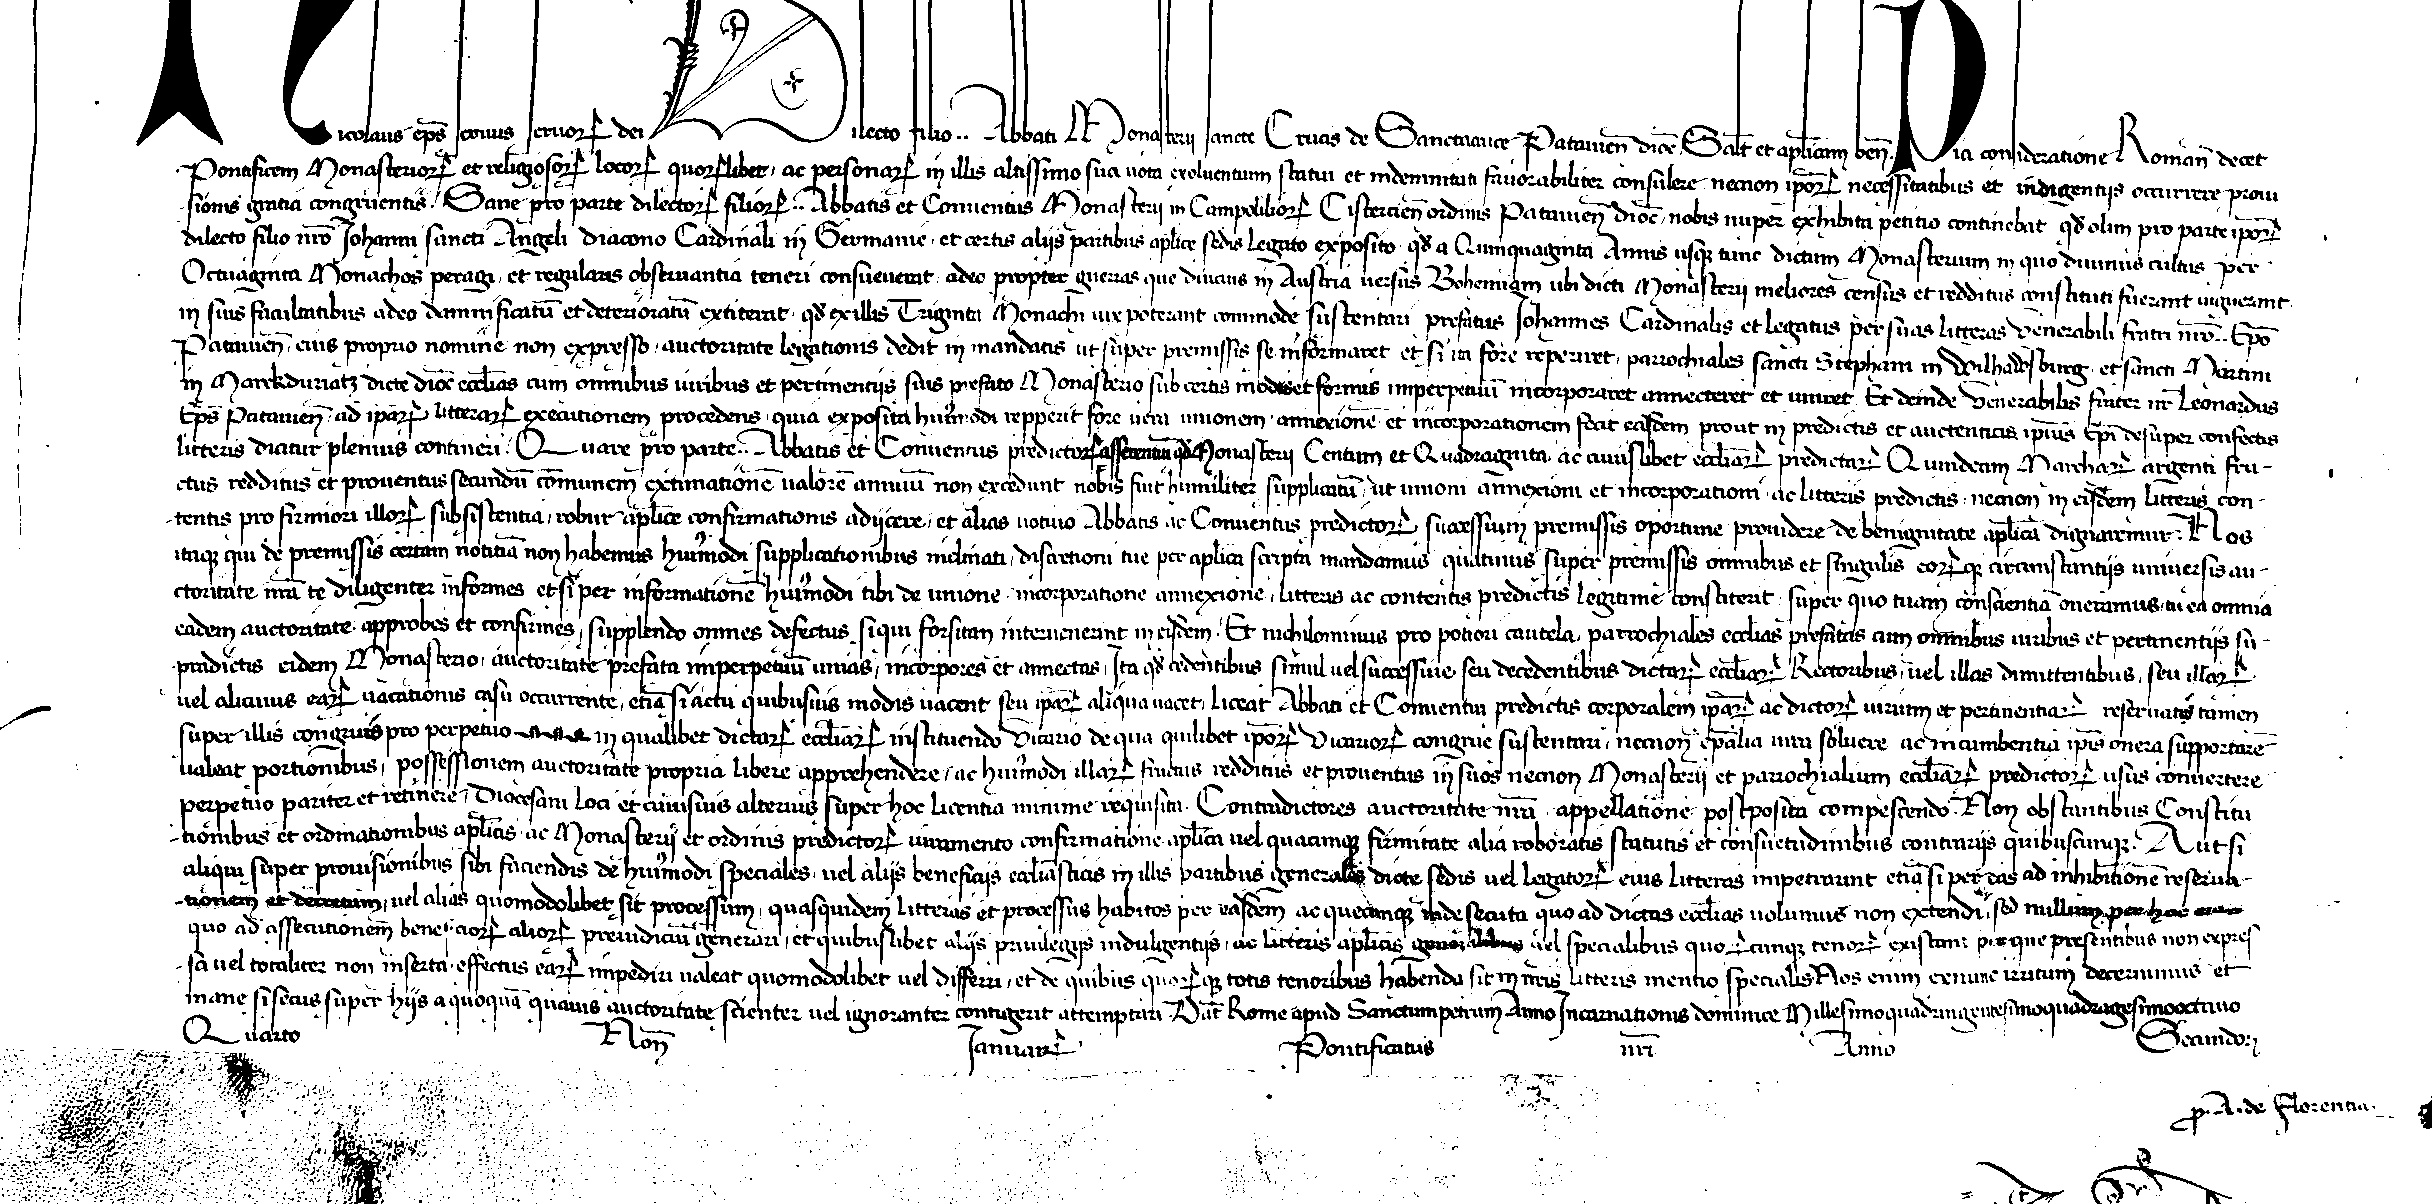 Nicolaus ep̄s seruus seruorꝝ dei Dilecto filio .. Abbati Monasterii sancte Crucis de Sanctacruce Patauien̄ dioc̄ Salt̄ et aplicam ben̄. Pia consideratione Roman̄ decet
Pontificem Monasteriorꝝ et religiosorꝝ locorꝝ quorꝝlibet, ac personarꝝ in illis altissimo sua uota exoluentium statui et indemnitati fauorabiliter consulere necnon iporꝝ necessitatibus et indigentijs occurrere proui
sionis gratia congruentis. Sane pro parte dilectorꝝ filiorꝝ .. Abbatis et Conuentus Monasterii in Campoliliorꝝ Cistercien̄ ordinis Patauien̄ dioc̄, nobis nuper exhibita petitio continebat qđ olim pro parte iporꝝ
dilecto filio nr̄o Johanni sancti Angeli diacono Cardinali in Germanie et certis alijs partibus aplice sedis Legato exposito qđ a Quinquaginta Annis usqꝫ tunc dictum Monasterium in quo diuinus cultus per
Octuaginta Monachos peragi, et regularis obseruantia teneri consueuerat, adeo propter guerras que diucius in Austria uersus Bohemiam ubi dicti Monasterii meliores census et redditus constituti fuerant uiguerant
in suis facultatibus adeo damnificatū et deterioratū extiterat, qđ ex illis Triginta Monachi uix poterant commode sustentari prefatus Johannes Cardinalis et legatus per suas litteras Venerabili fratri nr̄o .. Ep̄o
Patauien̄, eius proprio nomine non expresso, auctoritate legationis dedit in mandatis ut super premissis se informaret et si ita fore reperiret, parrochiales sancti Stephani in Wilhalmsburg, et sancti Martini
in Marckduriatz dicte dioc̄ eccl̄ias cum omnibus iuribus et pertinentijs suis prefato Monasterio sub certis modis et formis imperpetuū incorporaret annecteret et uniret. Et deinde Venerabilis frater nr̄ Leonardus
Ep̄s Patauien̄ ad iparꝝ litterarꝝ executionem procedens, quia exposita huiꝰmodi repperit fore uera unionem, annexionē et incorporationem fecit easdem prout in predictis et auctenticis ipius Ep̄i desuper confectis
litteris dicitur plenius contineri. Quare pro parte .. Abbatis et Conuentus predictorꝝ asserentiū qđ Monasterii Centum et Quadraginta ac cuiuslibet eccl̄iarꝝ predictarꝝ Quindecim Marcharꝝ argenti fru-
ctus redditus et prouentus secundū cōmunem extimationē ualorē annuū non excedunt nobis fuit humiliter supplicatū, ut unioni annexioni et incorporationi ac litteris predictis, necnon in eisdem litteris con-
tentis pro firmiori illorꝝ subsistentia, robur aplice confirmationis adijcere, et alias uotiuo Abbatis ac Conuentus predictorꝝ successiuum premissis oportune prouidere de benignitate aplica dignaremur. Nos
itaqꝫ qui de premissis certam notitiā non habemus huiꝰmodi supplicationibus inclinati, discretioni tue per aplica scripta mandamus quatinus super premissis omnibus et singulis eorꝝqꝫ circumstantijs uniuersis au-
ctoritate nr̄a te diligenter informes et si per informationē huiꝰmodi tibi de unione, incorporatione annexione, litteris ac contentis predictis legitime constiterit, super quo tuam conscientiā oneramus, tu ea omnia
eadem auctoritate approbes et confirmes, supplendo omnes defectus, si qui forsitan interuenerint in eisdem. Et nichilominus pro potiori cautela, parrochiales eccl̄ias prefatas cum omnibus iuribus et pertinentijs su-
pradictis eidem Monasterio, auctoritate prefata imperpetuū unias, incorpores et annectas, Ita qđ cedentibus simul uel successiue, seu decedentibus dictarꝝ eccl̄iarꝝ Rectoribus, uel illas dimittentibus, seu illarꝝ
uel alicuius earꝝ uacationis casu occurrente, etiā si actu quibusuis modis uacent seu iparꝝ aliqua uacet, liceat Abbati et Conuentui predictis corporalem iparꝝ ac dictorꝝ iurium et pertinentiarꝝ reseruatis tamen
super illis congruis pro perpetuo in qualibet dictarꝝ eccl̄iarꝝ instituendo Vicario de qua quilibet ipōrꝝ Vicariorꝝ congrue sustentari, necnon ep̄alia iura soluere ac incumbentia ip̄is onera supportare
ualeat portionibus, possessionem auctoritate propria libere apprehendere, ac huiꝰmodi illarꝝ fructus redditus et prouentus in suos necnon Monasterii et parrochialium eccl̄iarꝝ predictorꝝ usus conuertere
perpetuo pariter et retinere, Diocesani loci et cuiusuis alterius super hoc licentia minime requisita. Contradictores auctoritate nr̄a appellatione postposita compescendo. Non obstantibus Constitu
tionibus et ordinationibus aplicis ac Monasterij et ordinis predictorꝝ iuramento confirmatione aplica uel quacumqꝫ firmitate alia roboratis statutis et consuetudinibus contrarijs quibuscunqꝫ. Aut si
aliqui super prouisionibus sibi faciendis de huiꝰmodi speciales, uel alijs beneficijs eccl̄iasticis in illis partibus generales dicte sedis uel Legatorꝝ eius litteras impetrarint etiā si per eas ad inhibitionē reserua-
tionem et decretum, uel alias quomodolibet sit processum, quasquidem litteras et processus habitos per easdem ac quecumqꝫ inde secuta quo ad dictas eccl̄ias uolumus non extendi, sed nullum per hoc eis
quo ad assecutionem beneficiorꝝ aliorꝝ preiudiciū generari, et quibuslibet alijs priuilegijs indulgentijs, ac litteris aplicis generalibus uel specialibus quorꝝcunqꝫ tenorꝝ existant per que presentibus non expres
sa uel totaliter non inserta effectus earꝝ impediri ualeat quomodolibet uel differri, et de quibus quorꝝqꝫ totis tenoribus habenda sit in nr̄is litteris mentio specialis. Nos enim exnunc irritum decernimus et
inane si secus super hijs a quoquā quauis auctoritate scienter uel ignoranter contigerit attemptari. Dat̄ Rome apud Sanctumpetrum Anno Incarnationis dominice Millesimoquadringentesimoquadragesimooctauo
Quarto Non̄ Januarꝝ Pontificatus nr̄i Anno Secundo
p. A. de Florentia.